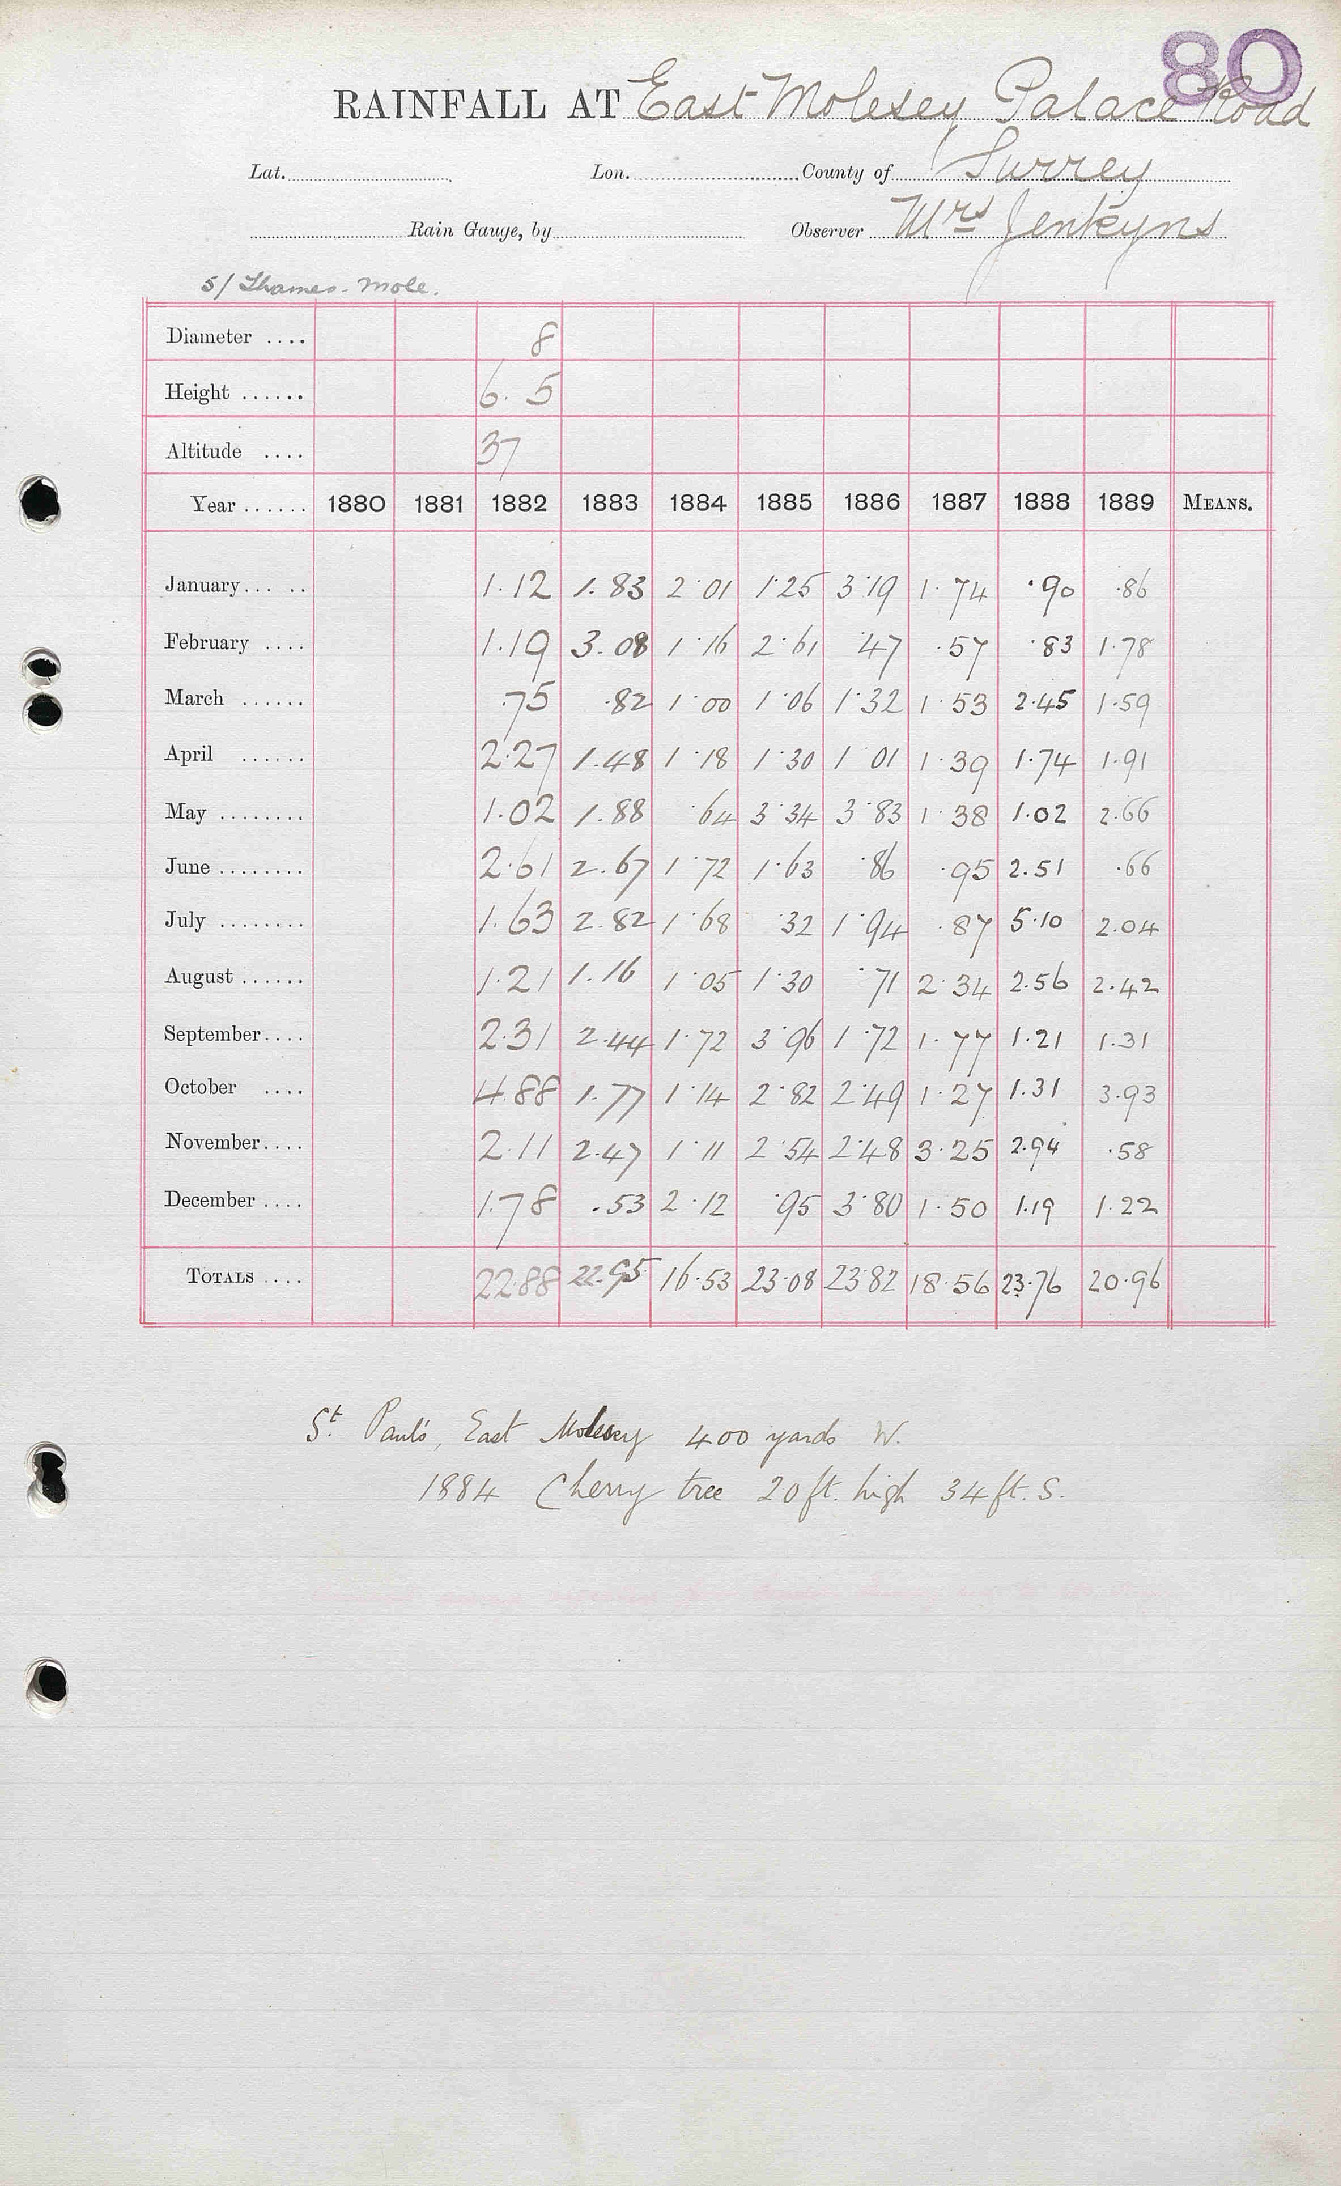 80
RAINFALL AT East Molesey Palace Road
Lat. Lon. County of Surrey
Rain Gauge, by Observer Mrs Jenkyns
5/ Thames - Mole.
Diameter .... 8
Height ...... 6. 5
Altitude .... 37
Year ...... 1880 1881 1882 1883 1884 1885 1886 1887 1888 1889 MEANS.
January ... .. 1.12 1.83 2.01 1.25 3.19 1.74 .90 .86
February .... 1.19 3.08 1.16 2.61 .47 .57 .83 1.78
March ...... .75 .82 1.00 1.06 1.32 1.53 2.45 1.59
April ...... 2.27 1.48 1.18 1.30 1.01 1.39 1.74 1.91
May ........ 1.02 1.88 .64 3.34 3.83 1.38 1.02 2.66
June ........ 2.61 2.67 1.72 1.63 .86 .95 2.51 .66
July ........ 1.63 2.82 1.68 .32 1.94 .87 5.10 2.04
August ...... 1.21 1.16 1.05 1.30 .71 2.34 2.56 2.42
September .... 2.31 2.44 1.72 3.96 1.72 1.77 1.21 1.31
October .... 4.88 1.77 1.14 2.82 2.49 1.27 1.31 3.93
November .... 2.11 2.47 1.11 2.54 2.48 3.25 2.94 .58
December .... 1.78 .53 2.12 .95 3.80 1.50 1.19 1.22
TOTALS .... 22.88 22.95 16.53 23.08 23.82 18.56 23.76 20.96
St. Paul's, East Molesey 400 yards W.
1884 Cherry tree 20 ft. high 34 ft. S.